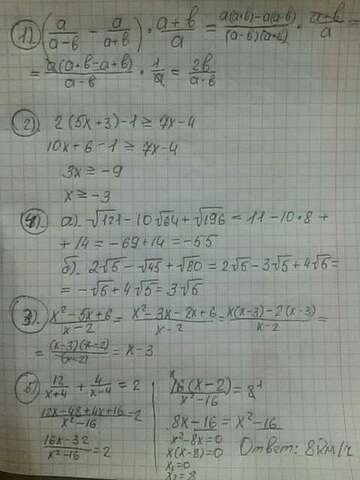 1). (a/(a-в) - a/(a+в)) · (a+в)/a = (a(a+в)-a(a-в))/((a-в)(a+в)) · (a+в)/a =
= a(a+в-a+в)/(a-в) · 1/a = 2в/(a-в)
2). 2(5x+3)-1≥7x-4
10x+6-1≥7x-4
3x≥-9
x≥-3
4). а). √121-10√64+√196=11-10·8+
+14=-69+14=-55
б). 2√5-√45+√80=2√5-3√5+4√5=
=-√5+4√5=3√5
3). (x²-5x+6)/(x-2) = (x²-3x-2x+6)/(x-2) = (x(x-3)-2(x-3))/(x-2) =
= (x-3)(x-2)/(x-2) = x-3
12/(x+4) + 4/(x-4) = 2
(12x-48+4x+16)/(x²-16) = 2
(16x-32)/(x²-16) = 2
16(x-2)/(x²-16) = 8
8x-16=x²-16
x²-8x=0
x(x-8)=0
x₁=0
x₂=8
Ответ: 8км/ч